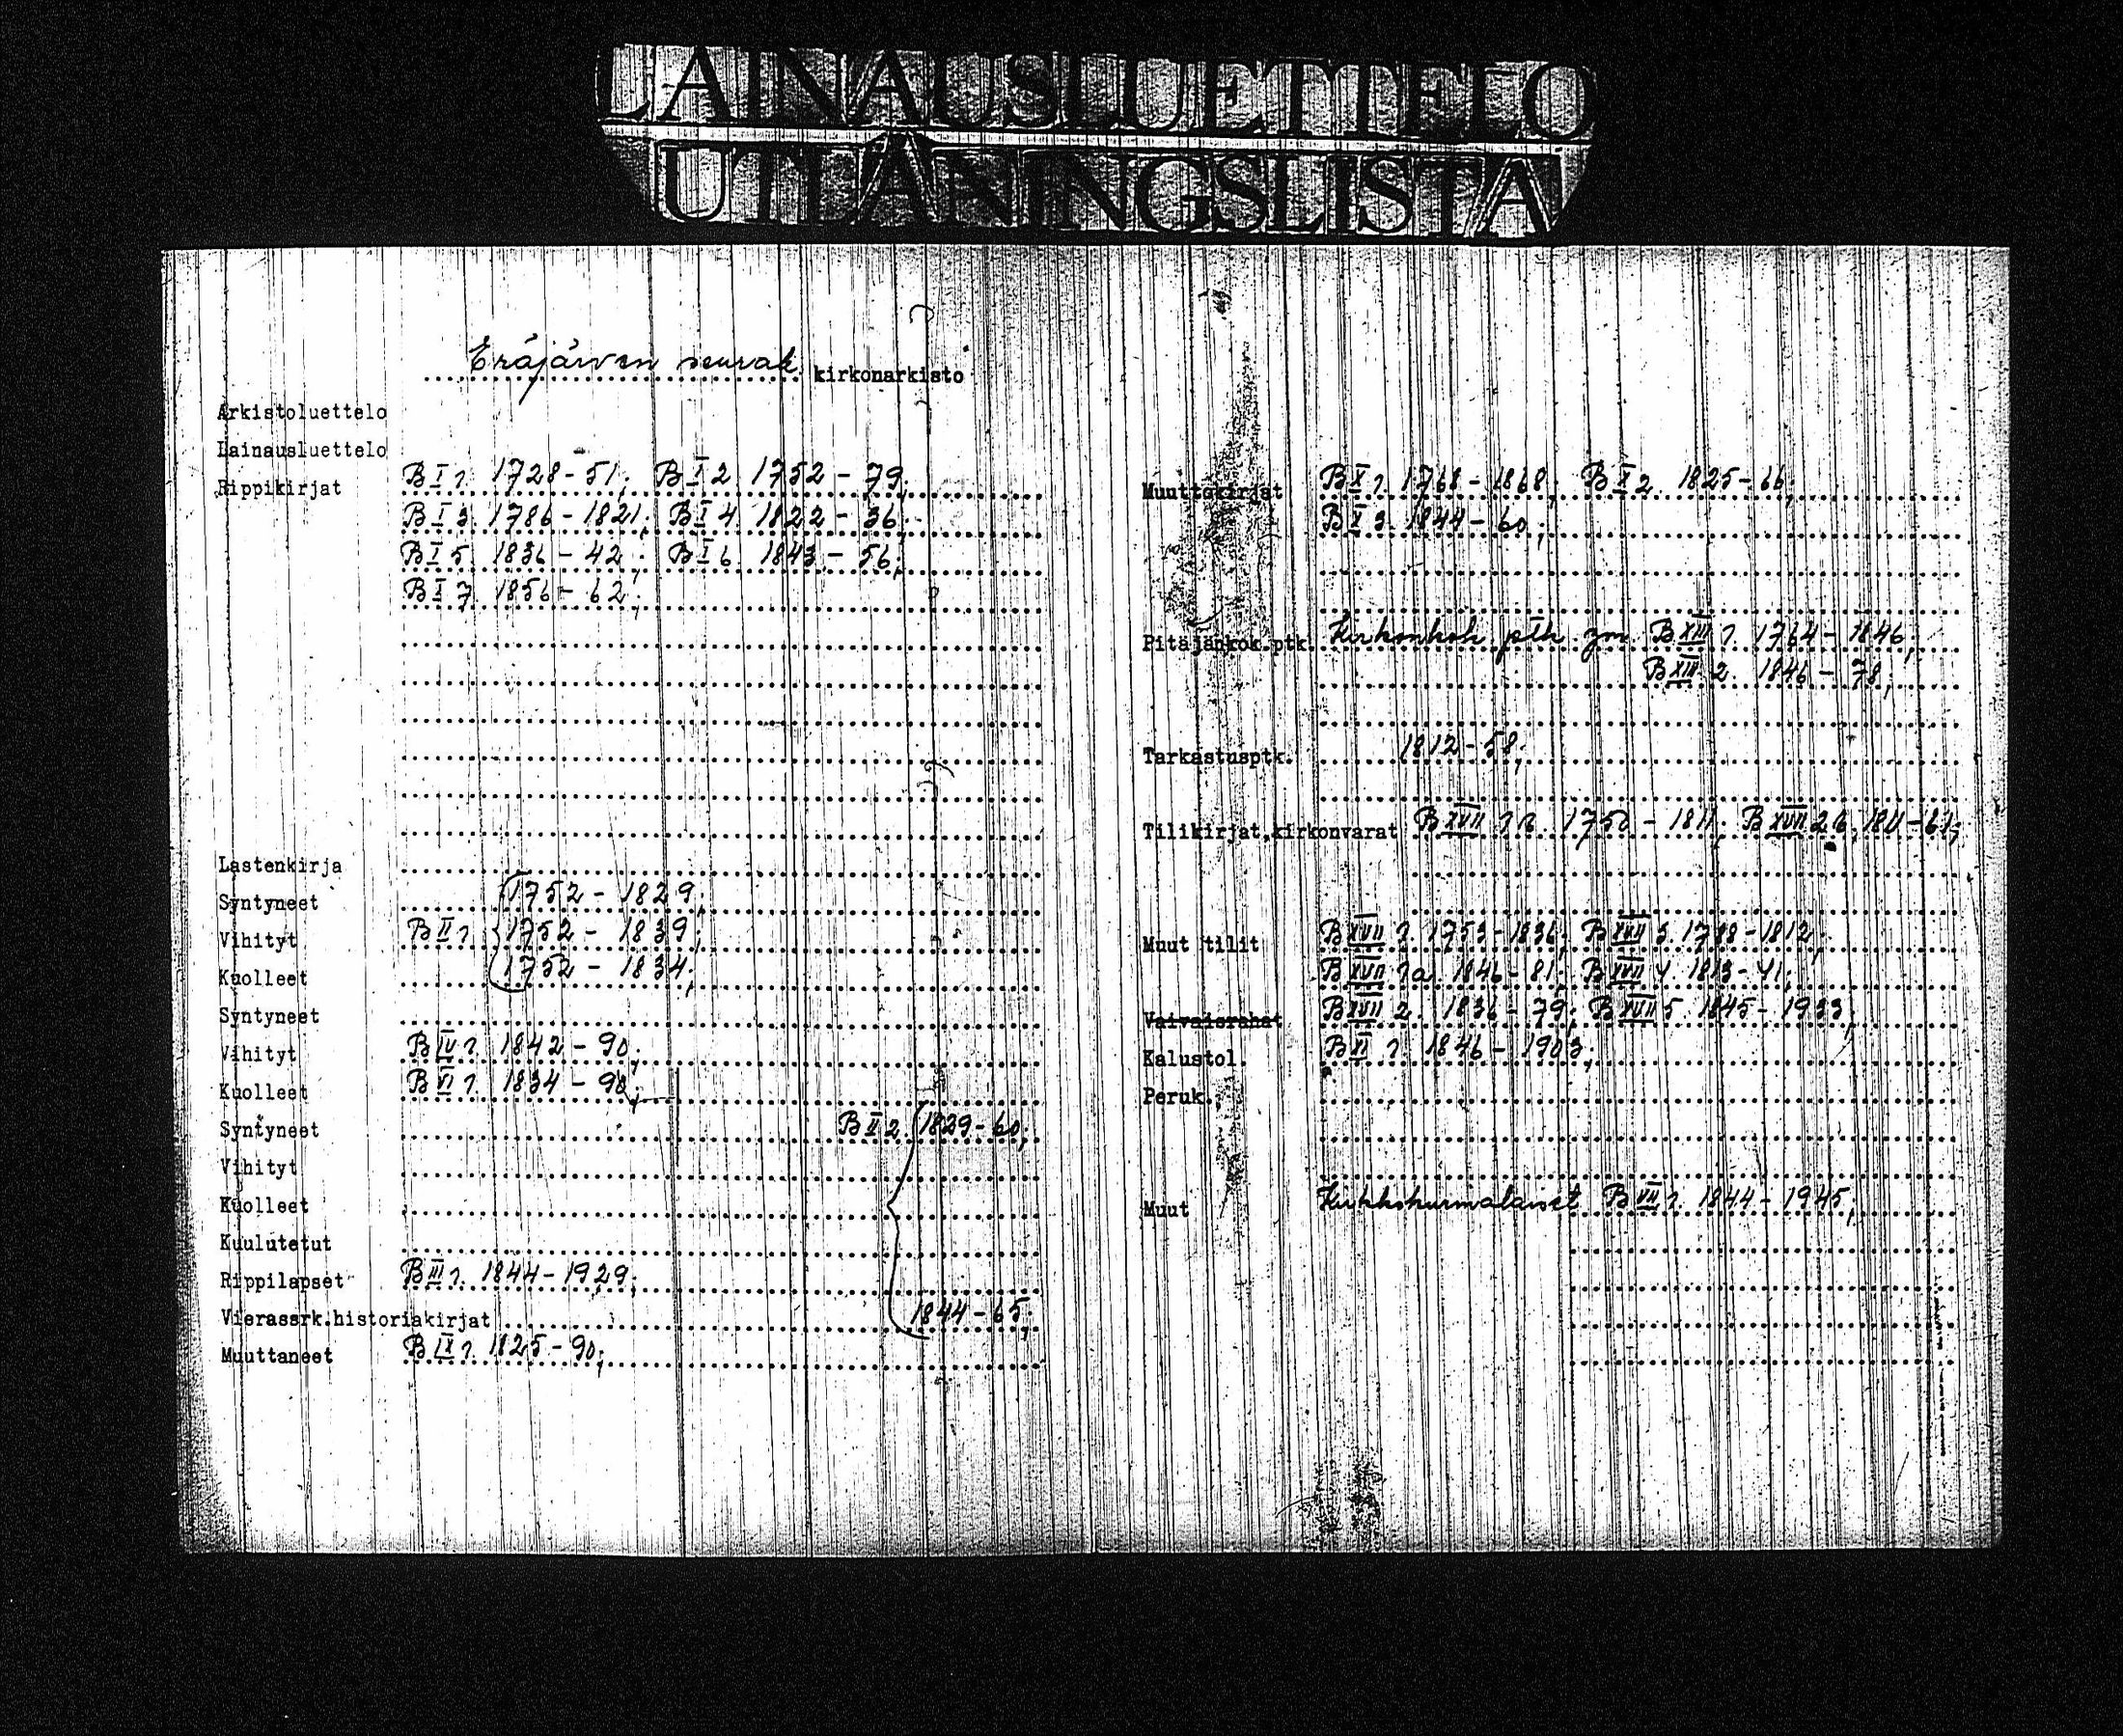 LAINAUSLUETTELO
UTLÅNINGSLISTA
Eräjärven seurak. kirkonarkisto
Arkistoluettelo
Lainausluettelo
Rippikirjat B I 1. 1728-51; B I 2 1752-79;
B I 3. 1786-1821; B I 4. 1822-36;
B I 5. 1836-42; B I 6 1843-56;
B I 7. 1856-62;
Lastenkirja
Syntyneet 1752-1829;
Vihityt B II 1. 1752-1839;
Kuolleet 1752-1834;
Syntyneet
Vihityt B IV 1. 1842-90;
Kuolleet B VI 1. 1834-90;
Syntyneet B II 2. 1829-60;
Vihityt
Kuolleet
Kuulutetut
Rippilapset B III 1. 1844-1929;
Vierassrk.historiakirjat 1844-65;
Muuttaneet B IX 1. 1825-90;
Muuttokirjat B X 1. 1768-1868; B X 2. 1825-66;
B X 3. 1844-60;
Pitäjänkok.ptk. Kirkonkok. ptk. B XIII 1. 1764-1846;
B XIII 2. 1846-78;
Tarkastusptk. 1812-58;
Tilikirjat,kirkonvarat B XVII 1 1750-1811; B XVII 2 1811-61;
Muut tilit B XVII 1. 1753-1836; B XVII 3. 1788-1812;
B XVII 1a. 1846-81; B XVII 4. 1813-41;
Vaivaisrahat B XVII 2. 1836-79; B XVII 5. 1845-1933;
Kalustol. B XI 1. 1846-1903;
Peruk.
Muut B VII 1. 1844-1945;